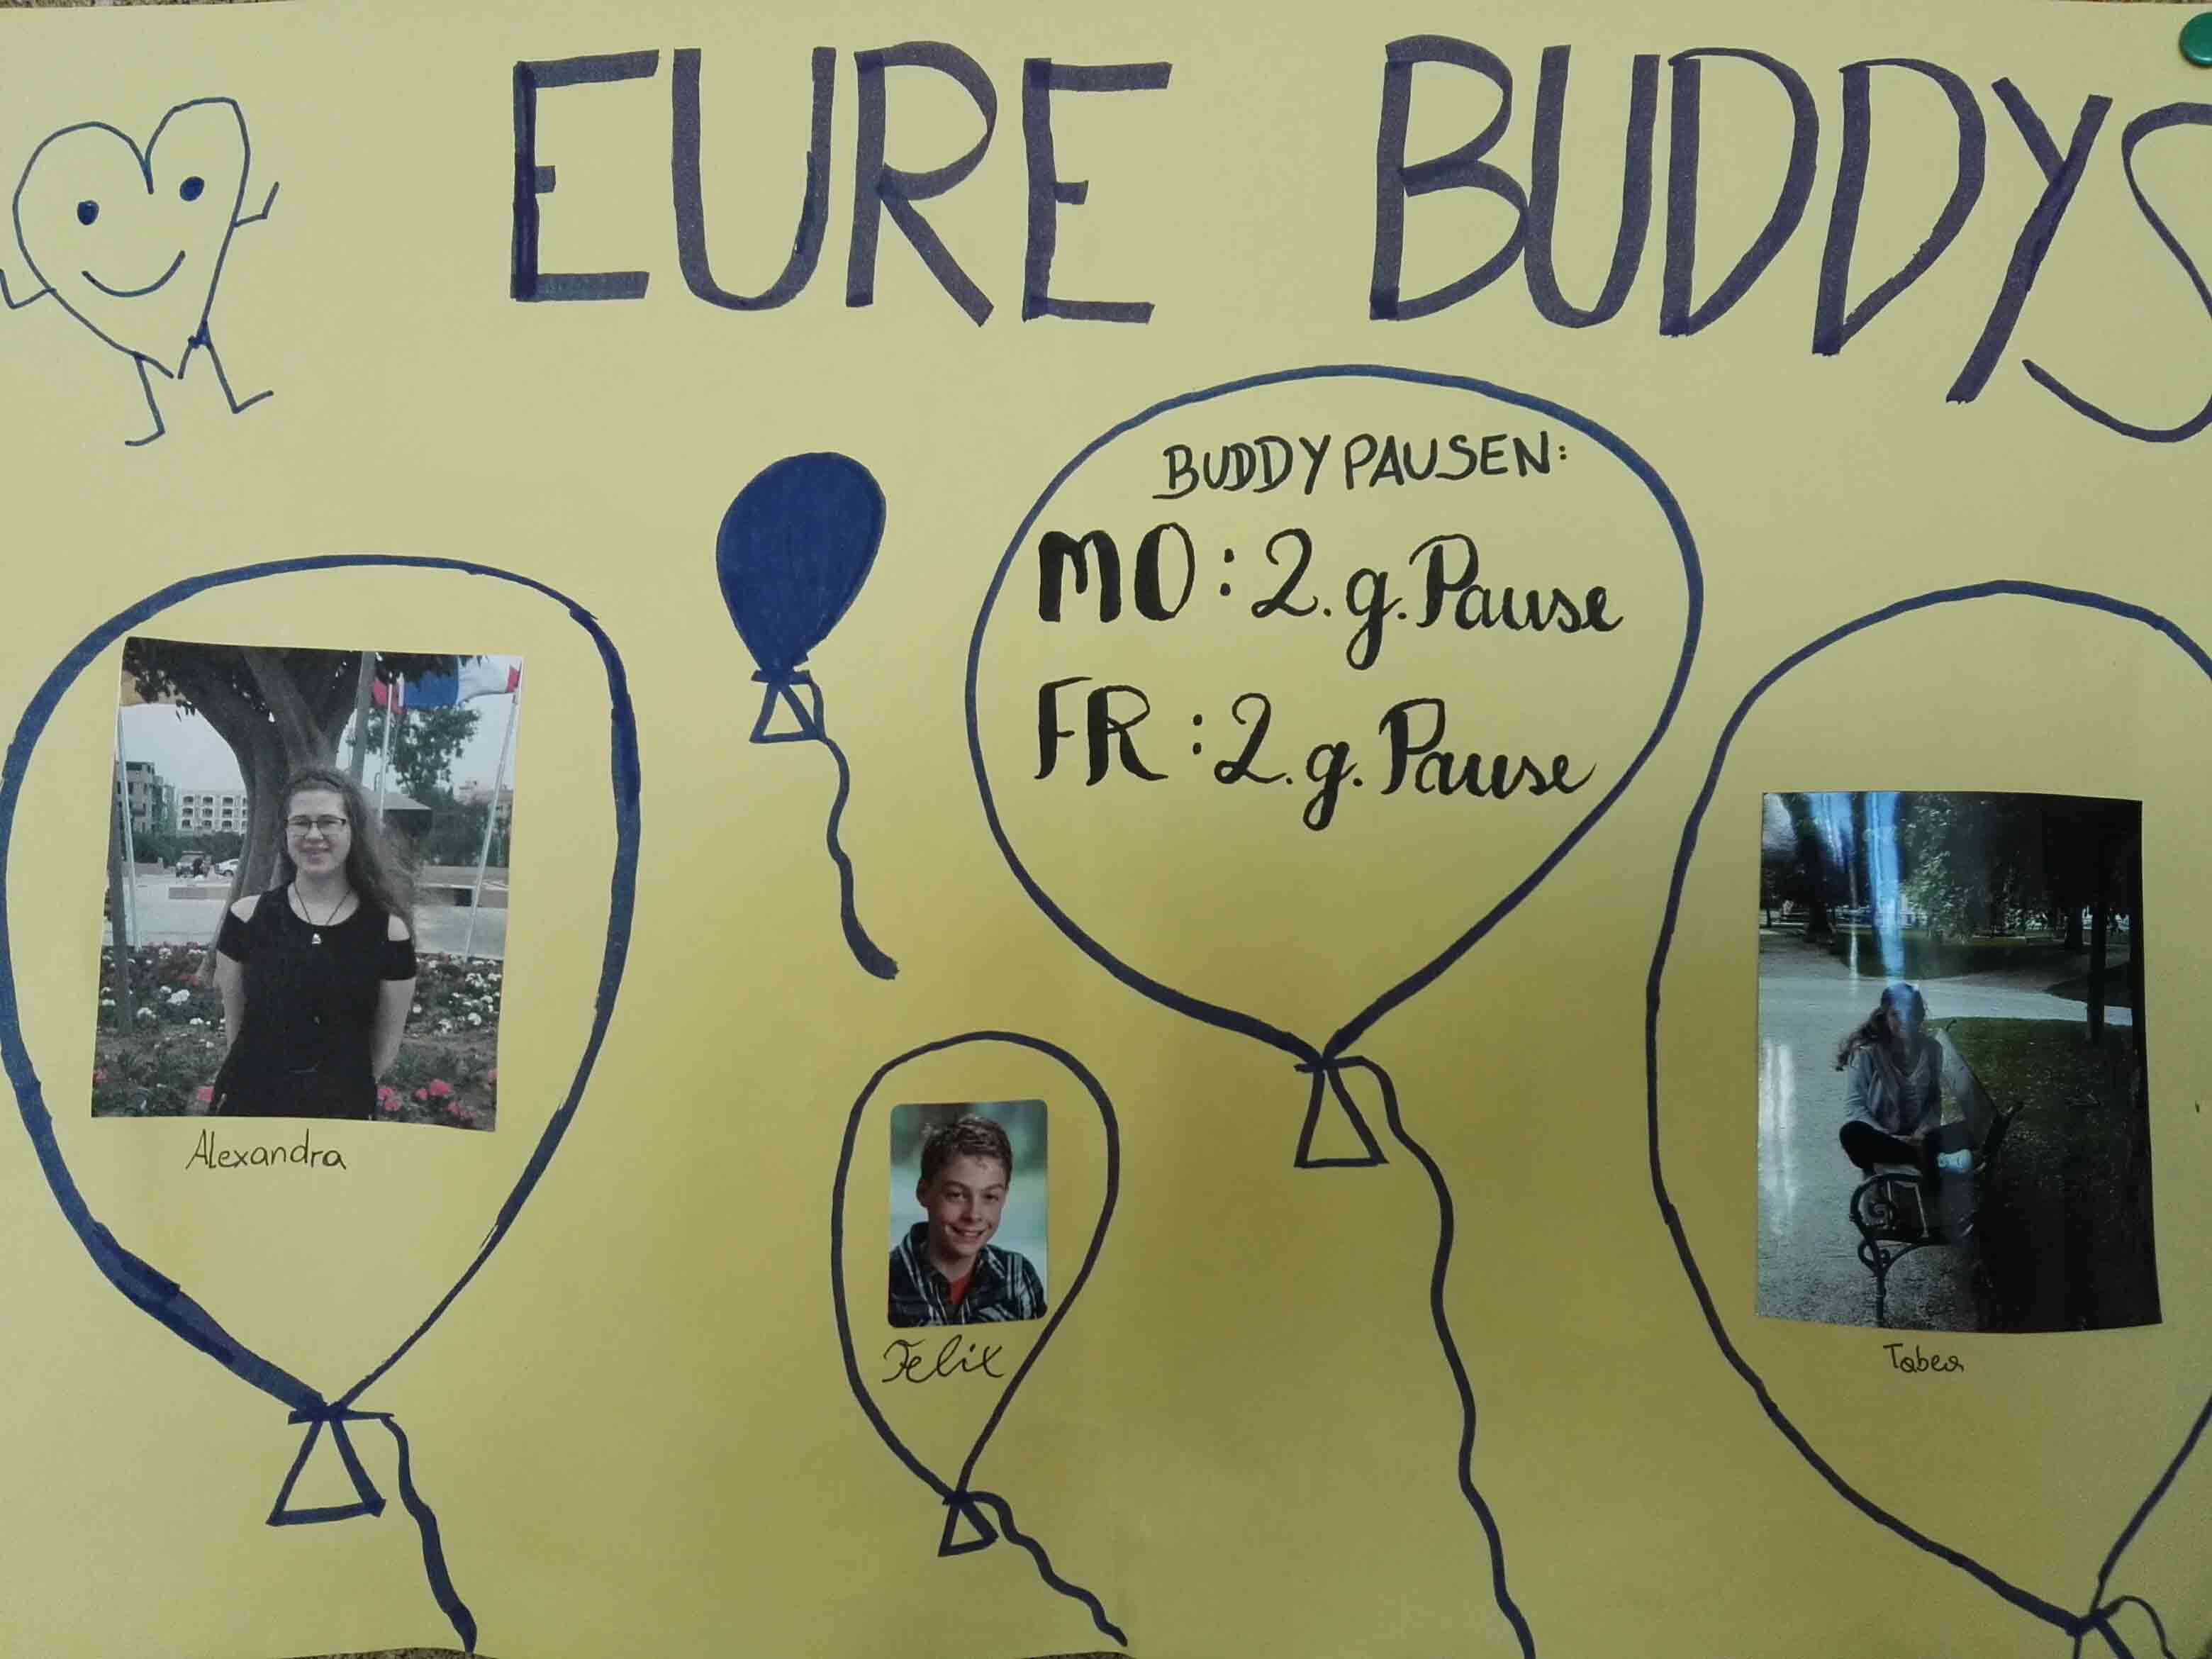 EURE BUDDYS
BUDDY PAUSEN:
MO: 2. g. Pause
FR: 2. g. Pause
Alexandra
Felix
Tabea